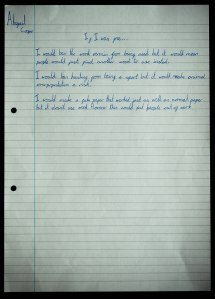 Abigail
If I was pm...
I would ban the word vermin from being used but it would mean
people would just find another word to use instead.
I would ban hunting from being a sport but it would make animal
overpopulation a risk.
I would make a fake paper that worked just as well as normal paper
but it doesn't use wood. However this would put people out of work